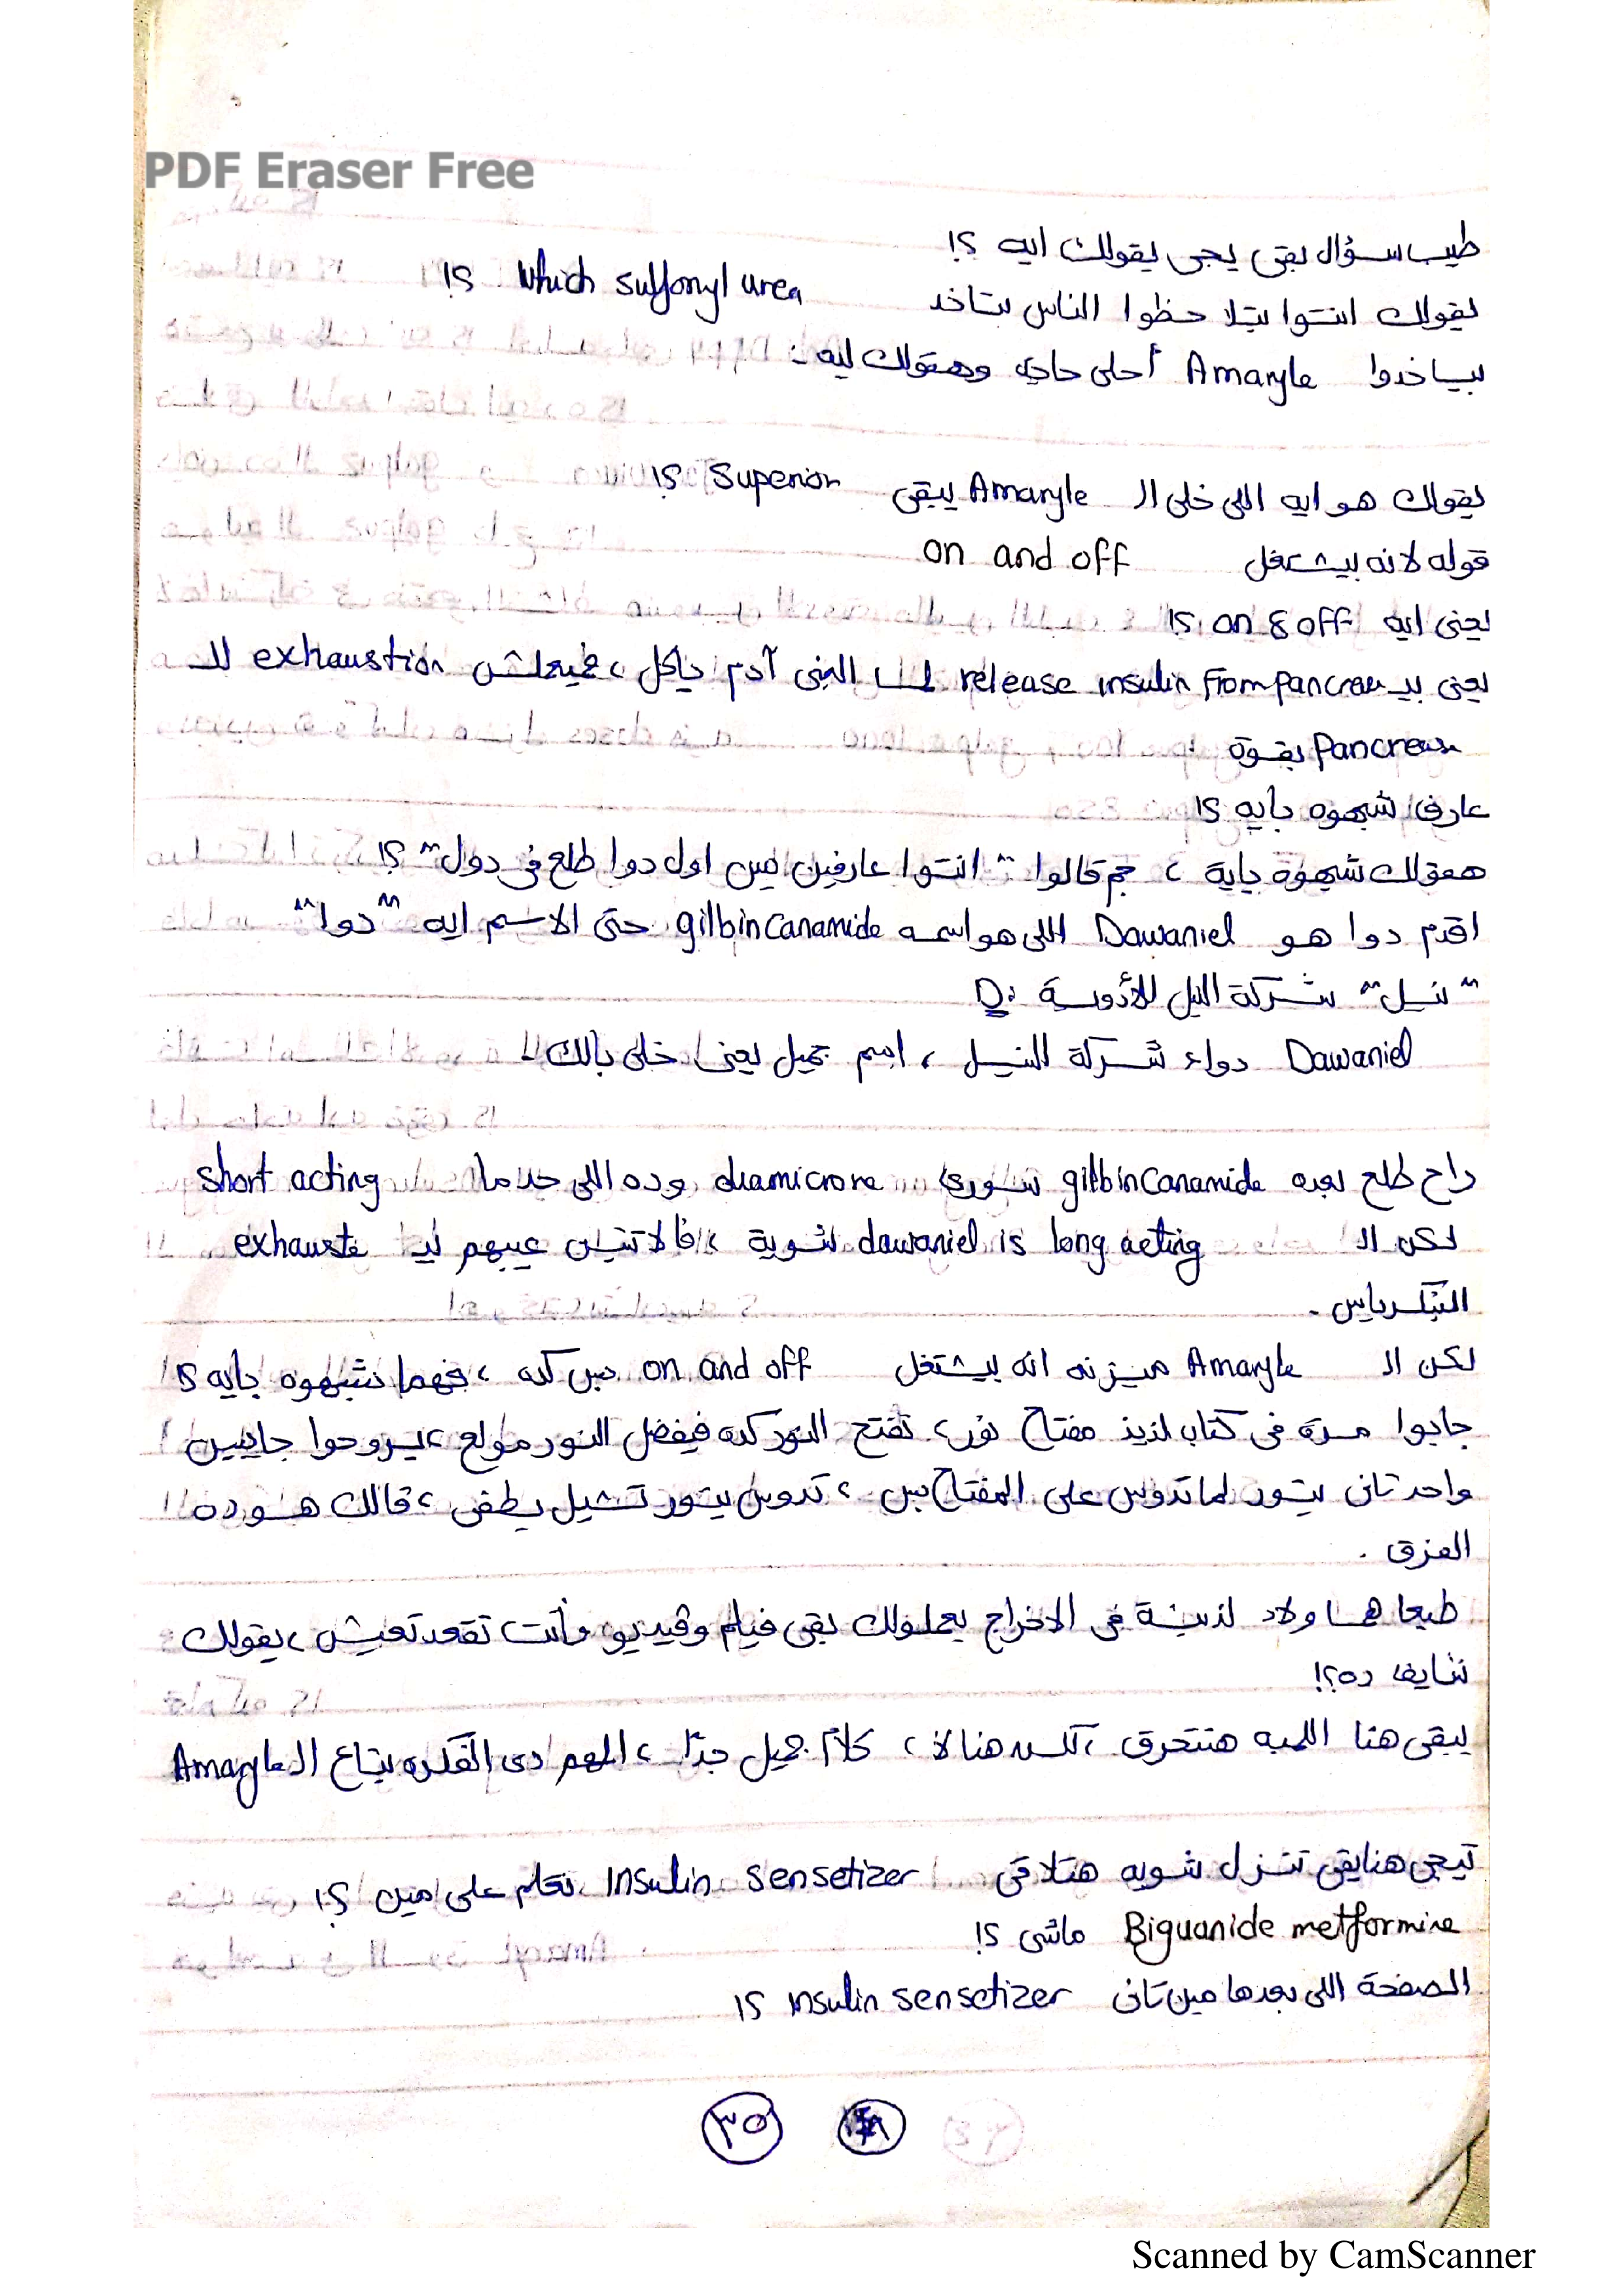 PDF Eraser Free
طيب سؤال بقى يجى يقولك ايه ؟!
يقولك انتوا بتلاحظوا الناس بتاخد Which sulfonyl urea ؟!
بياخدوا Amaryle أحلى حاجة وهقولك ليه :
يقولك هو ايه اللى خلى الـ Amaryle يبقى Superior ؟!
قوله لانه بيشتغل on and off
يعنى ايه on & off ؟!
يعنى بيـ release insulin from pancreas لما البنى آدم ياكل ، فميعملش exhaustion للـ
Pancreas بقوة
عارف شبهوه بايه ؟!
هقولك شبهوه باية ، هم قالوا " انتوا عارفين مين اول دوا طلع فى دول " ؟!
اقدم دوا هو Dawaniel اللى هو اسمه gilbincanamide حتى الاسم ايه "دوا"
"نيل" شركة النيل للأدوية :D
Dawaniel دواء شركة النيل ، اسم جميل يعنى خلى بالك
راح طلع بعده gilbincanamide شورى diamicrone وده اللى جدما short acting
لكن الـ dawaniel is long acting شوية ، فالاتنين عيبهم ايه exhauste
البنكرياس .
لكن الـ Amaryle ميزته انه بيشتغل on and off بس كده ، فهما شبهوه بايه ؟!
جابوا مرة فى كتاب لذيذ مفتاح نور ، تفتح النور كده فيفضل النور مولع ، يروحوا جايبين
واحد تانى ينور لما تدوس على المفتاح بس ، تدوس ينور تشيل يطفى ، قالك هو ده
الفرق .
طبعا هما ولاد لذينة فى الاخراج يعملولك بقى فيلم وفيديو وأنت تقعد تعيش ، يقولك
شايف ده ؟!
يبقى هنا اللمبه هتتحرق ، لكن هنا لا ، كلام جميل جدًا ، المهم دى الفكره بتاع الـ Amaryle
تيجى هنا بقى تنزل شويه هتلاقى Insulin Sensetizer نتكلم على مين ؟!
Biguanide metformine ماشى ؟!
الصفحة اللى بعدها مين تانى insulin sensetizer ؟!
٣٥
Scanned by CamScanner